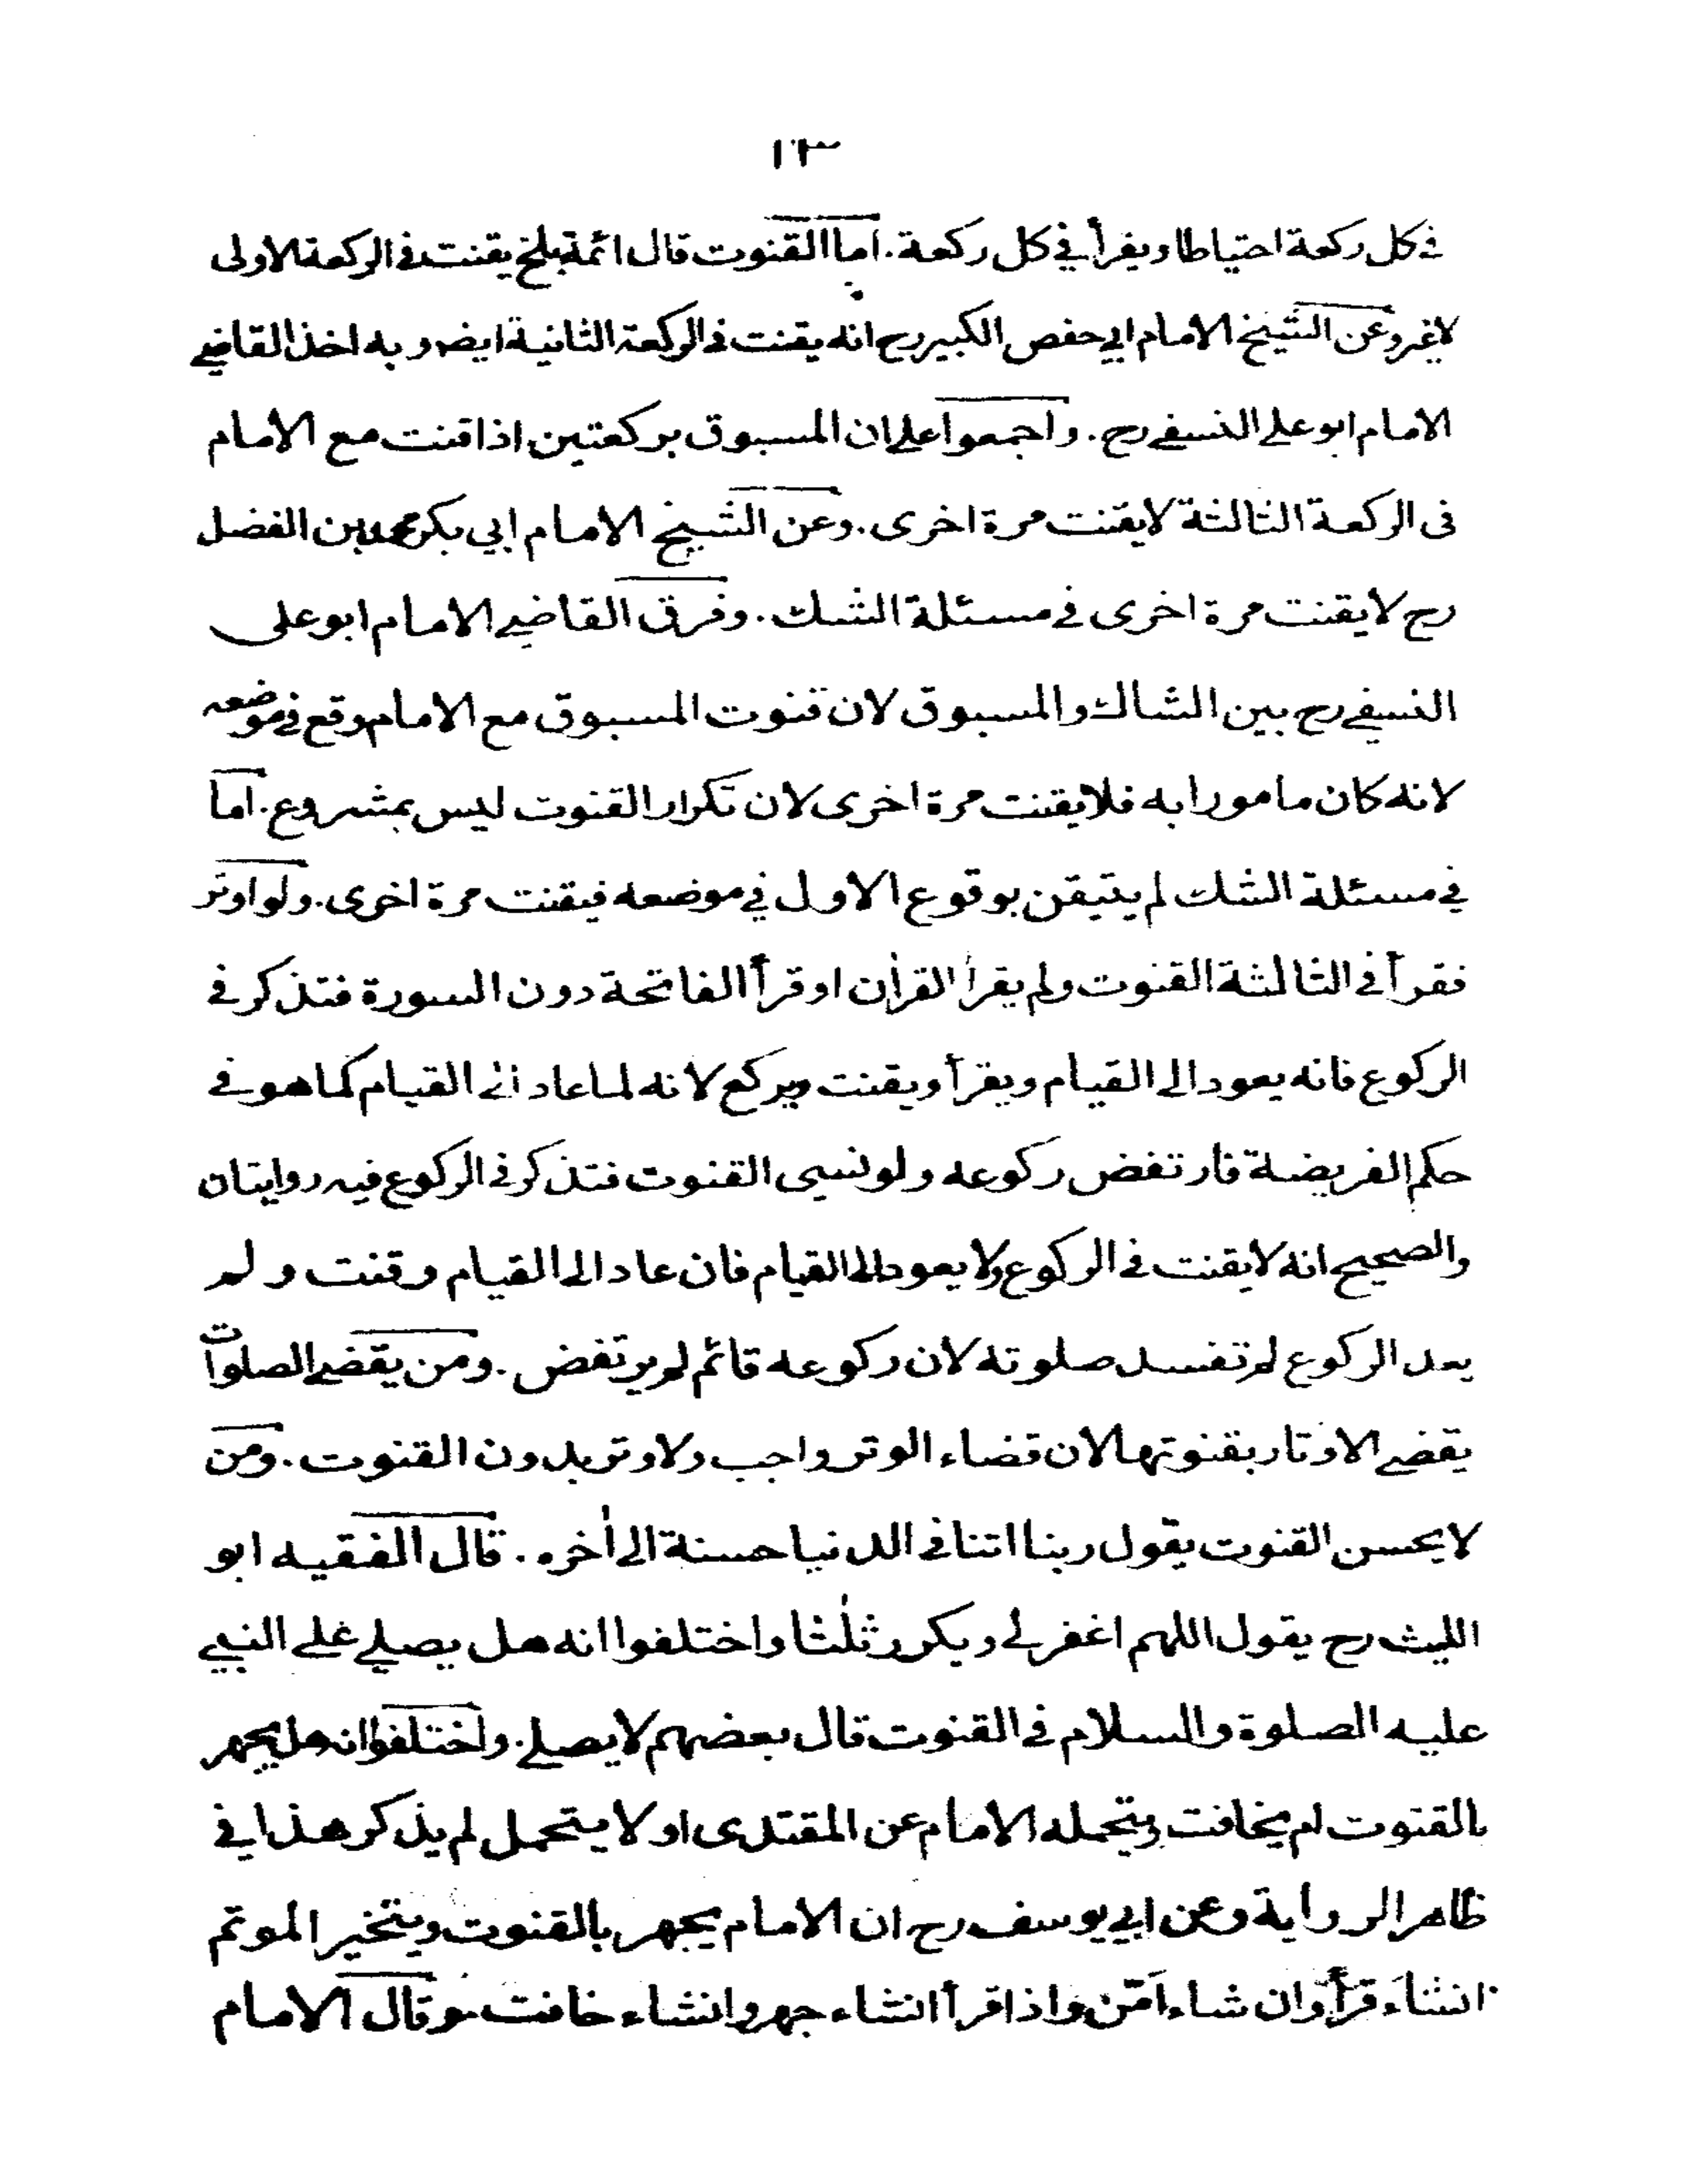 ١٢٣
في كل ركعة احتياطا ويقرأ في كل ركعة. اما القنوت قال ائمة بلخ يقنت في الركعة الاولى
لاغير وعن الشيخ الامام ابي حفص الكبير رح انه يقنت في الركعة الثانية ايضا وبه اخذ القاضي
الامام ابو علي النسفي رح. واجمعوا على ان المسبوق بركعتين اذا قنت مع الامام
في الركعة الثالثة لايقنت مرة اخرى. وعن الشيخ الامام ابي بكر محمد بن الفضل
رح لايقنت مرة اخرى في مسئلة الشك. وفرق القاضي الامام ابو على
النسفي رح بين الشاك والمسبوق لان قنوت المسبوق مع الامام وقع في موضعه
لانه كان مامورا به فلايقنت مرة اخرى لان تكرار القنوت ليس بمشروع. اما
في مسئلة الشك لم يتيقن بوقوع الاول في موضعه فيقنت مرة اخرى. ولو اوتر
فقرأ في الثالثة القنوت ولم يقرأ القرأن او قرأ الفاتحة دون السورة فتذكر في
الركوع فانه يعود الى القيام ويقرأ ويقنت ويركع لانه لما عاد الى القيام كما هو في
حكم الفريضة فارتفض ركوعه ولو نسي القنوت فتذكر في الركوع فيه روايتان
والصحيح انه لايقنت في الركوع ولايعود الى القيام فان عاد الى القيام وقنت ولم
يعد الركوع لم تفسد صلوته لان ركوعه قائم لم يرتفض. ومن يقضي الصلوات
يقضي الاوتار بقنوتها لان قضاء الوتر واجب ولاوتر بدون القنوت. ومن
لايحسن القنوت يقول ربنا اتنا في الدنيا حسنة الى أخره. قال الفقيه ابو
الليث رح يقول اللهم اغفر لي ويكرر ثلثا واختلفوا انه هل يصلي على النبي
عليه الصلوة والسلام في القنوت قال بعضهم لايصلي. واختلفوا انه هل يجهر
بالقنوت ام يخافت ويتحمله الامام عن المقتدى او لايتحمل لم يذكر هذا في
ظاهر الرواية وعن ابي يوسف رح ان الامام يجهر بالقنوت ويتخير الموتم
انشاء قرأ وان شاء امّن واذا قرأ انشاء جهر وانشاء خافت وقال الامام